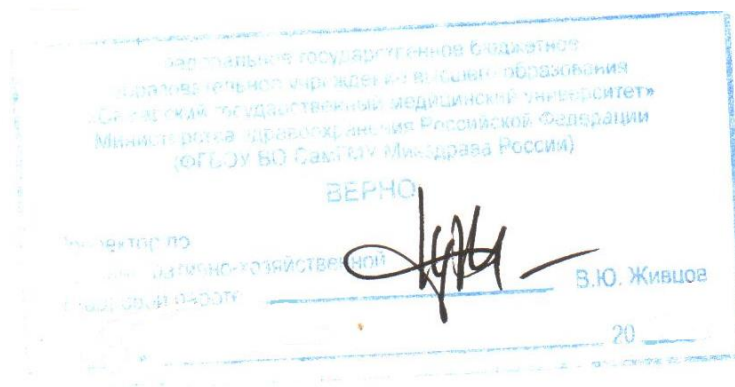 федеральное государственное бюджетное
образовательное учреждение высшего образования
«Самарский государственный медицинский университет»
Министерства здравоохранения Российской Федерации
(ФГБОУ ВО СамГМУ Минздрава России)
ВЕРНО
Проректор по
хозяйственной
работе
В.Ю. Живцов
20